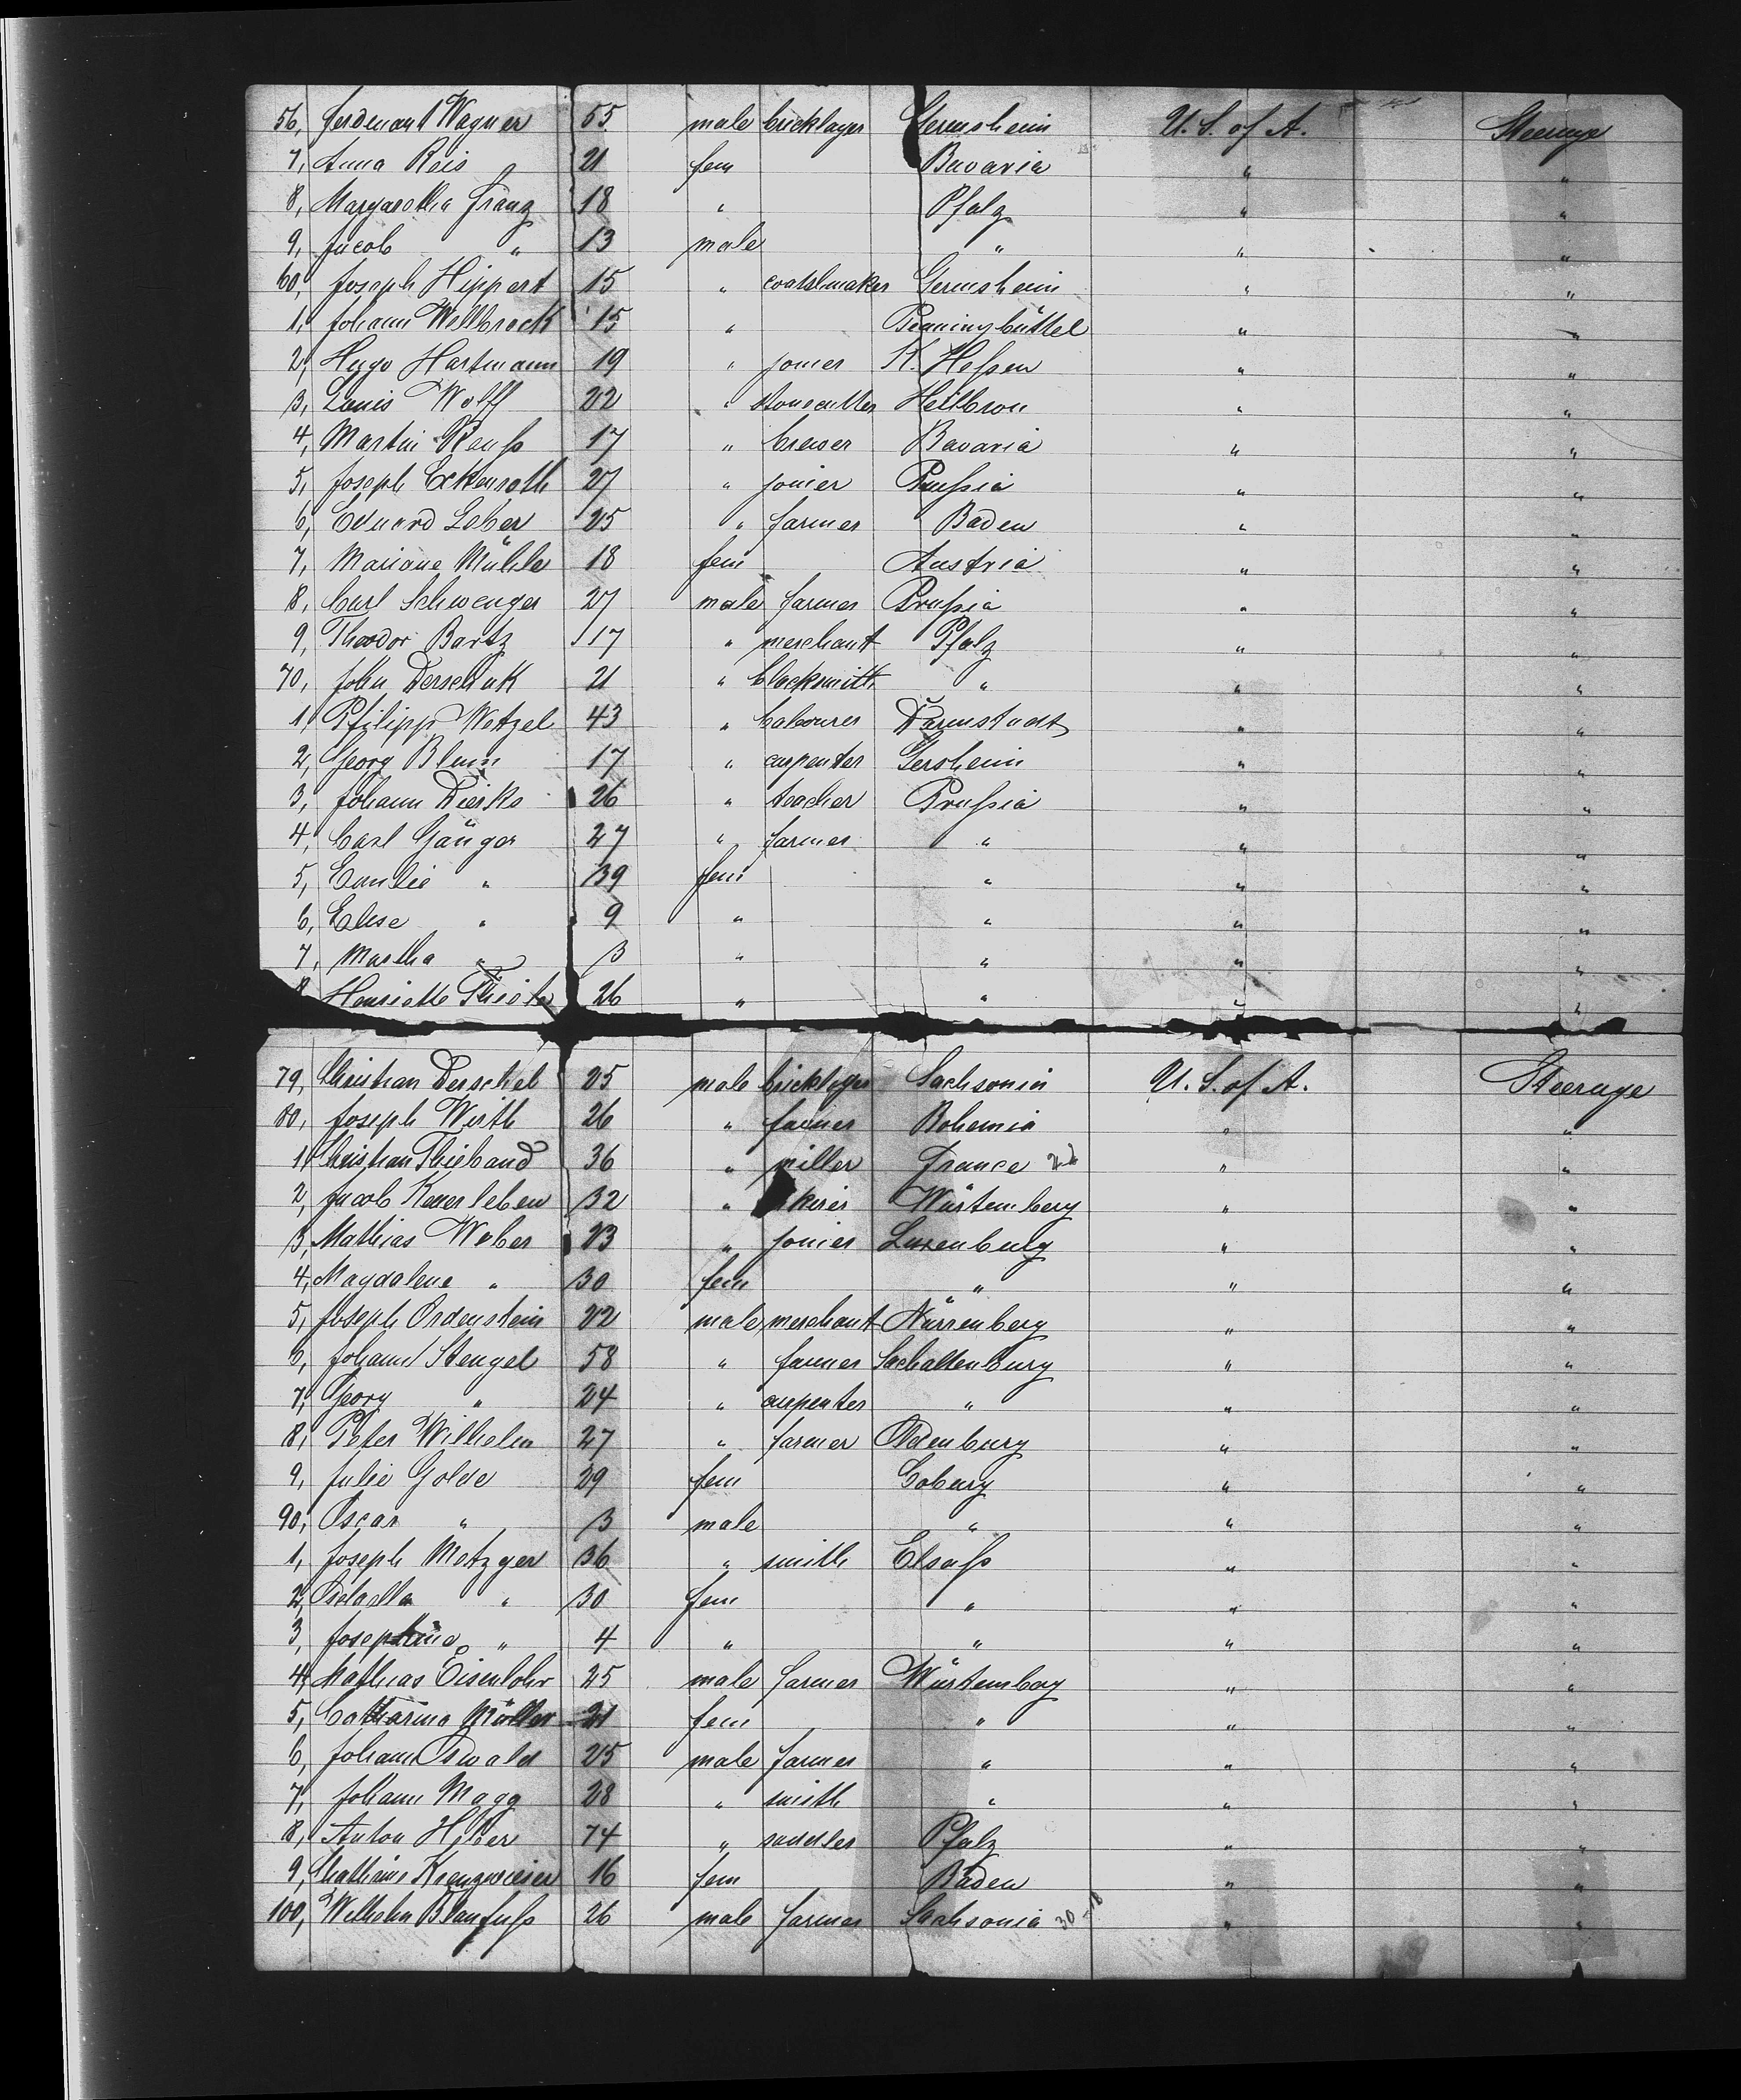 56, Ferdenant Wagner 55 male bricklayer Germsheim U. S. of A. Steerage
7, Anna Reis 21 fem Bavaria " "
8, Margarotha Franz 18 " Pfalz " "
9, Jacob " 13 male " " "
60, Joseph Hippert 15 " Germsheim " "
1, Johann Wellbrock 15 " " "
2, Hugo Hartmann 19 " joiner K. Heßen " "
3, Louis Wolff 22 " stonecutter Heilbron " "
4, Martin 17 " brewer Bavaria " "
5, Joseph Eckenroth 27 " joiner Preußia " "
6, Eduard Leber 25 " farmer Baden " "
7, Mariane Mühle 18 fem Austria " "
8, Carl Schwenger 27 male farmer Prußia " "
9, Theodor Bartz 17 " merchant Pfalz " "
70, John Derschuk 21 " blacksmith " " "
1, Philipp Wetzel 43 " labourer Darmstadt " "
2, Georg Blum 17 " carpenter Gersheim " "
3, Johann Dierks 26 " teacher Prußia " "
4, Carl Gänger 27 " farmer " " "
5, " 39 fem " " "
6, Elise " 9 " " " "
7, Martha " 3 " " " "
8 Henriette 26 " " " "
79, Christian Derschel 25 male bricklayer Sachsonia U. S. of A. Steerage
80, Joseph Wirth 26 " farmer Bohemia " "
1, Christian Thieband 36 " miller France " "
2, Jacob Keuerleben 32 " Würtemberg " "
3, Mathias Weber 23 " joiner Luxenburg " "
4, Magdalena " 30 fem " " "
5, Joseph Ordenstein 22 male merchant Nürrenberg " "
6, Johann Stengel 58 " farmer Sachaltenburg " "
7, Georg " 24 " carpenter " " "
8, Peter Wilhelm 27 " farmer Oldenburg " "
9, Julie Golde 29 fem Coburg " "
90, Oscar " 3 male " " "
1, Joseph Metzger 36 " smith Elsaß " "
2, " 30 fem " " "
3, Josephine " 4 " " " "
4, Mathias Eisenlohr 25 male farmer Würtemberg " "
5, Catharina Müller 21 fem " " "
6, Johann Oswald 25 male farmer " " "
7, Johann Magg 28 " smith " " "
8, Anton Hiber 74 " saddler Pfalz " "
9, 16 fem Baden " "
100, Wilhelm Blaufuß 26 male farmer Sachsonia " "